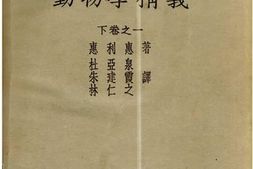 動物學精義
下卷之一
惠利惠 著
杜亞泉
朱建霞 譯
林仁之